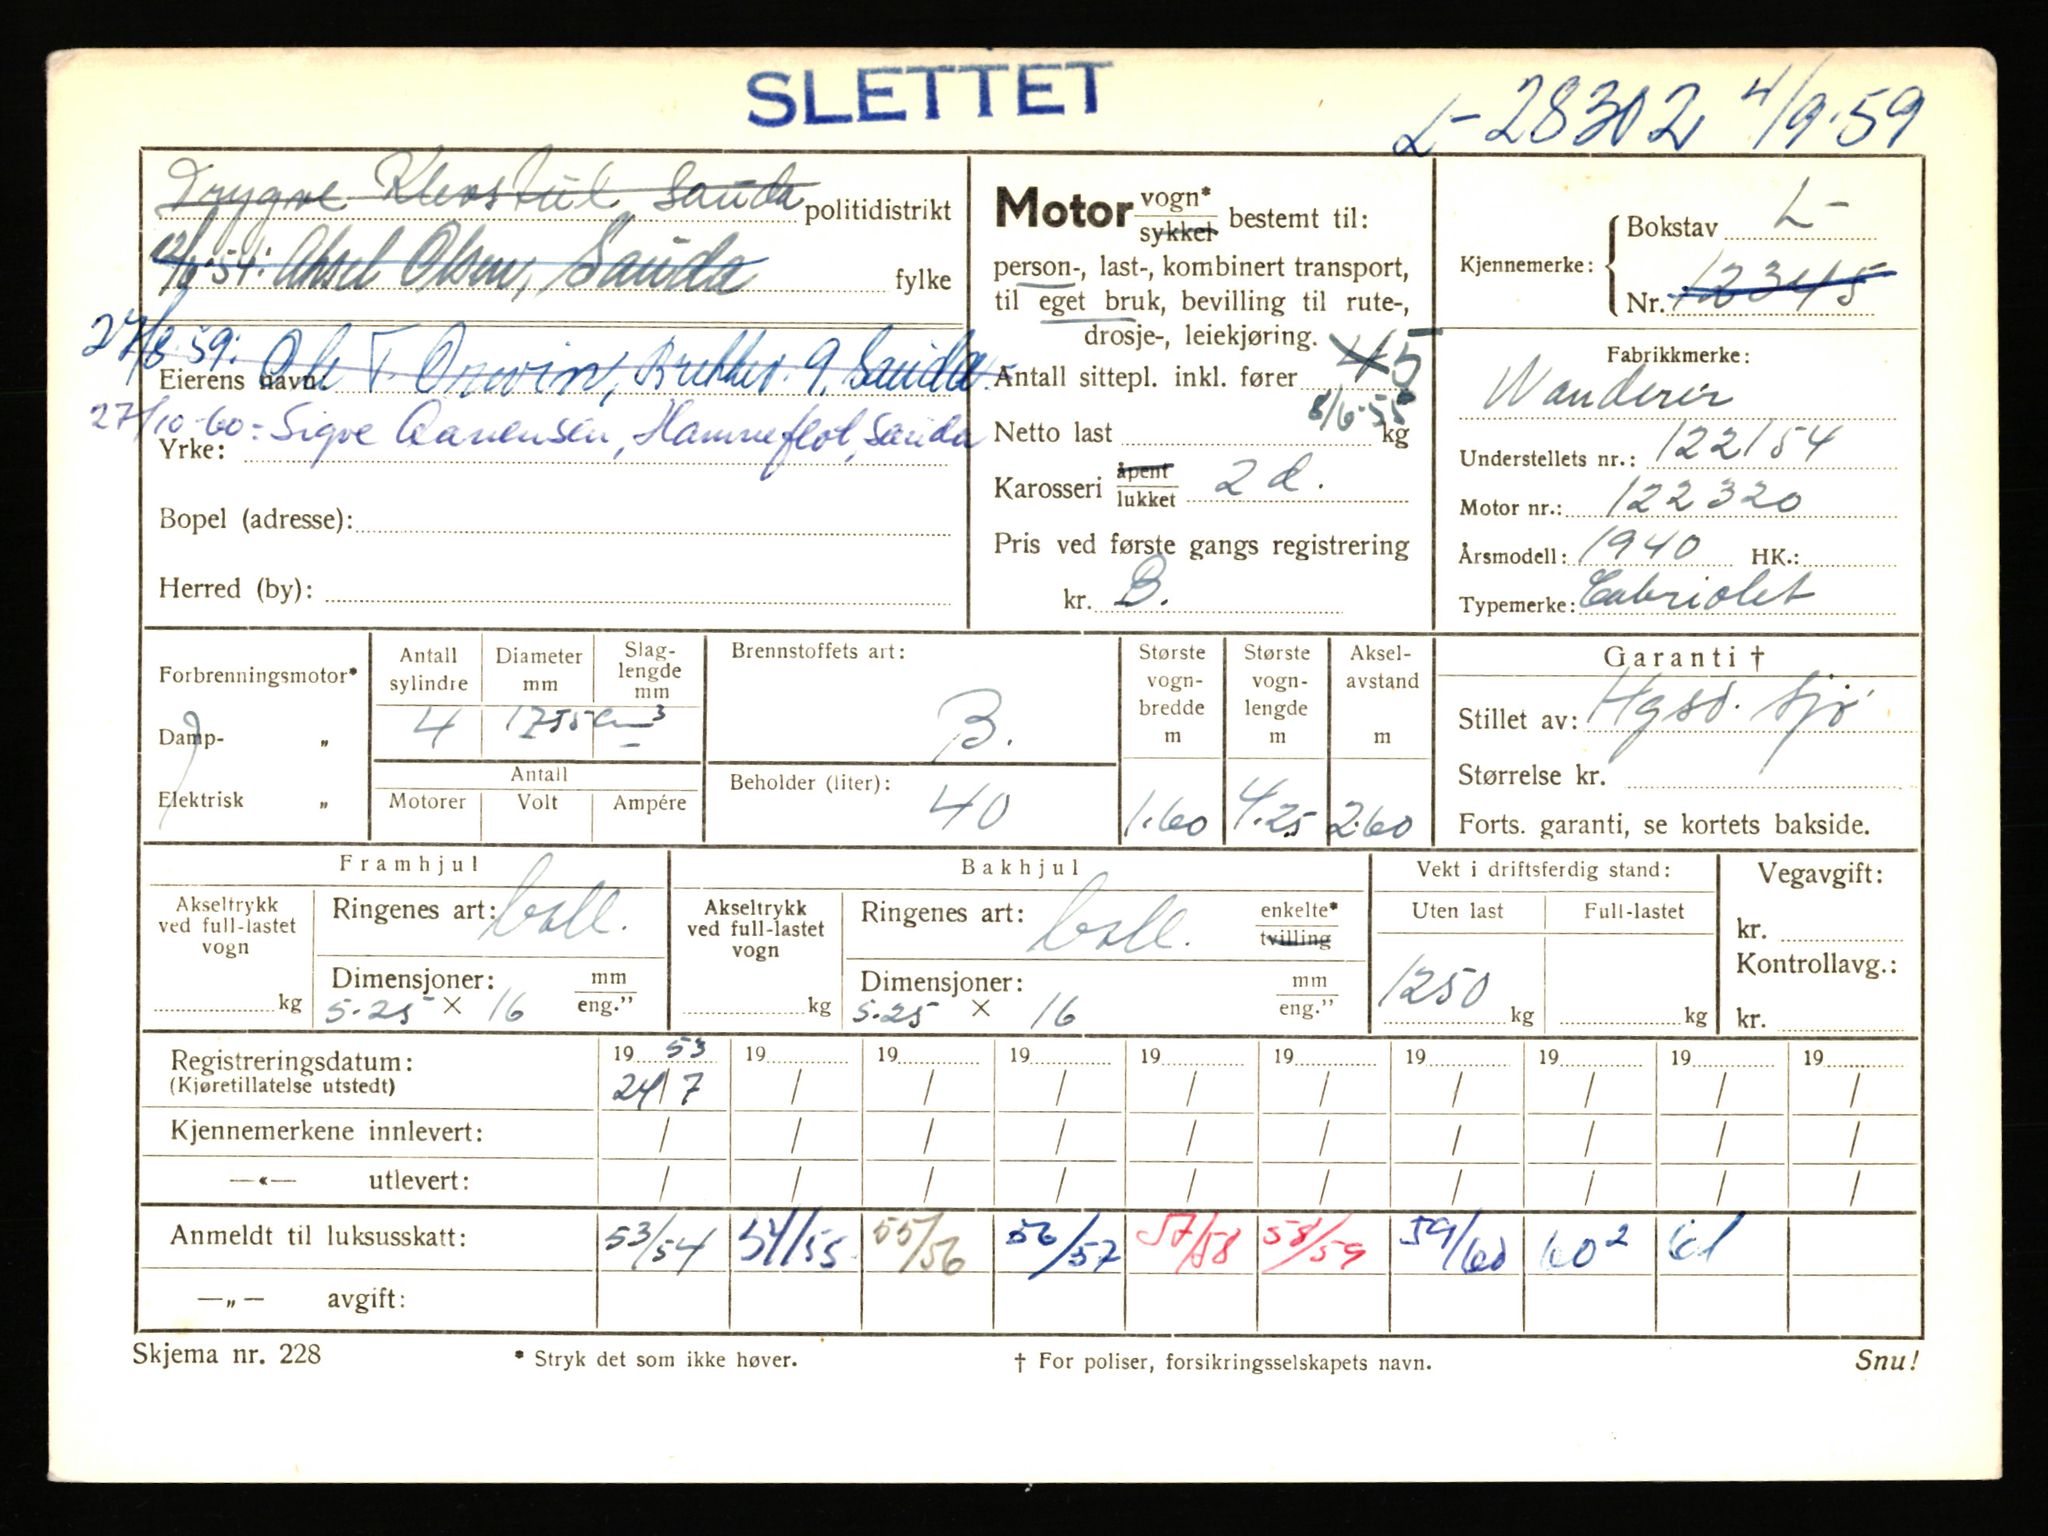 SLETTET
L-28302 4/9-59
Trygve Klevstul Sauda politidistrikt
12/6-54: Aksel Olsen, Sauda fylke
27/8-59: Ole T. 9, Sauda.
Eierens navn:
27/10-60: Sigve Aanensen, Hammeflot, Sauda
Yrke:
Bopel (adresse):
Herred (by):
Motor vogn* sykkel bestemt til:
person-, last-, kombinert transport,
til eget bruk, bevilling til rute-,
drosje-, leiekjøring.
Antall sittepl. inkl. fører 4 5
8/6-55
Netto last kg
Karosseri åpent lukket 2 d.
Pris ved første gangs registrering
kr. B.
Kjennemerke: Bokstav L-
Nr. 12345
Fabrikkmerke:
Wanderer
Understellets nr.: 122154
Motor nr.: 122320
Årsmodell: 1940 HK.:
Typemerke: Cabriolet
Forbrenningsmotor*
Damp- „
Elektrisk „
Antall sylindre Diameter mm Slag-lengde mm
4 1755 cm³
Antall
Motorer Volt Ampére
Brennstoffets art:
B.
Beholder (liter):
40
Største vogn-bredde m Største vogn-lengde m Aksel-avstand m
1.60 4.25 2.60
Garanti †
Stillet av: Hgsd. Sjø
Størrelse kr.
Forts. garanti, se kortets bakside.
Framhjul
Akseltrykk ved full-lastet vogn
kg
Ringenes art: ball.
Dimensjoner: mm
5.25 × 16 eng.”
Bakhjul
Akseltrykk ved full-lastet vogn
kg
Ringenes art: ball. enkelte* tvilling
Dimensjoner: mm
5.25 × 16 eng.”
Vekt i driftsferdig stand:
Uten last Full-lastet
1250 kg kg
Vegavgift:
kr.
Kontrollavg.:
kr.
Registreringsdatum: 19 53 19 19 19 19 19 19 19 19 19
(Kjøretillatelse utstedt) 24/7 / / / / / / / / /
Kjennemerkene innlevert: / / / / / / / / / /
—«— utlevert: / / / / / / / / / /
Anmeldt til luksusskatt: 53/54 54/55 55/56 56/57 57/58 58/59 59/60 60² 61
—„— avgift:
Skjema nr. 228 * Stryk det som ikke høver. † For poliser, forsikringsselskapets navn. Snu!